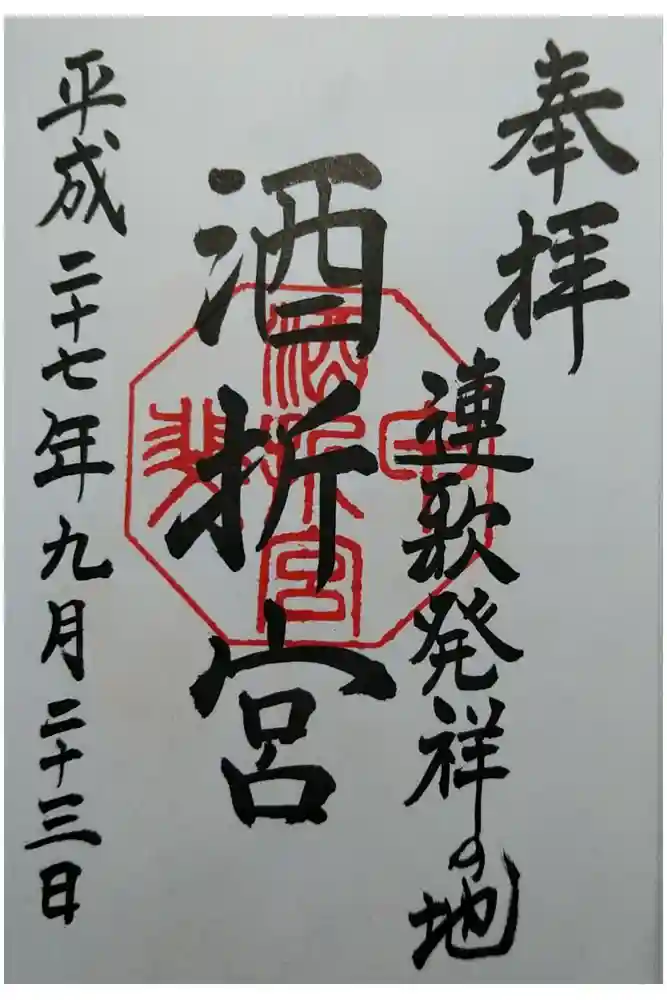 奉拝
連歌発祥の地
酒折宮
平成二十七年九月二十三日